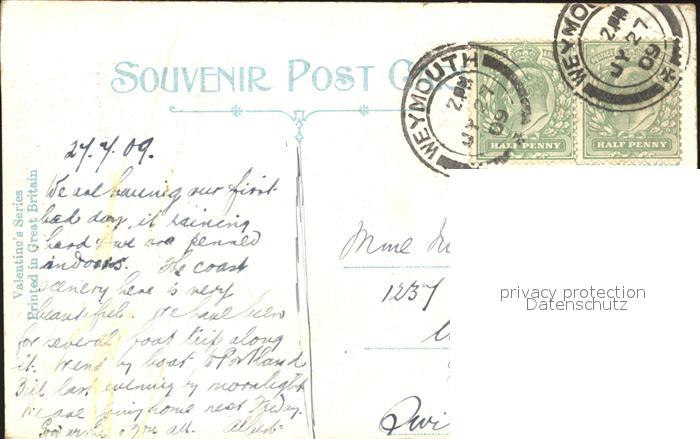 SOUVENIR POST C
WEYMOUTH
2. PM
JY 27
09
WEYMO
2. PM
JY 27
09
HALF PENNY
HALF PENNY
27.7.09.
We are having our first
bad day, it raining
hard & we are penned
indoors. The coast
scenery here is very
beautiful. We have been
for several boat trip along
it. Went by boat to Portland
Bill last evening by moonlight
We are going home next Friday.
Good wishes to you all. Albert
Valentine's Series
Printed in Great Britain
Mme
1237
privacy protection
Datenschutz